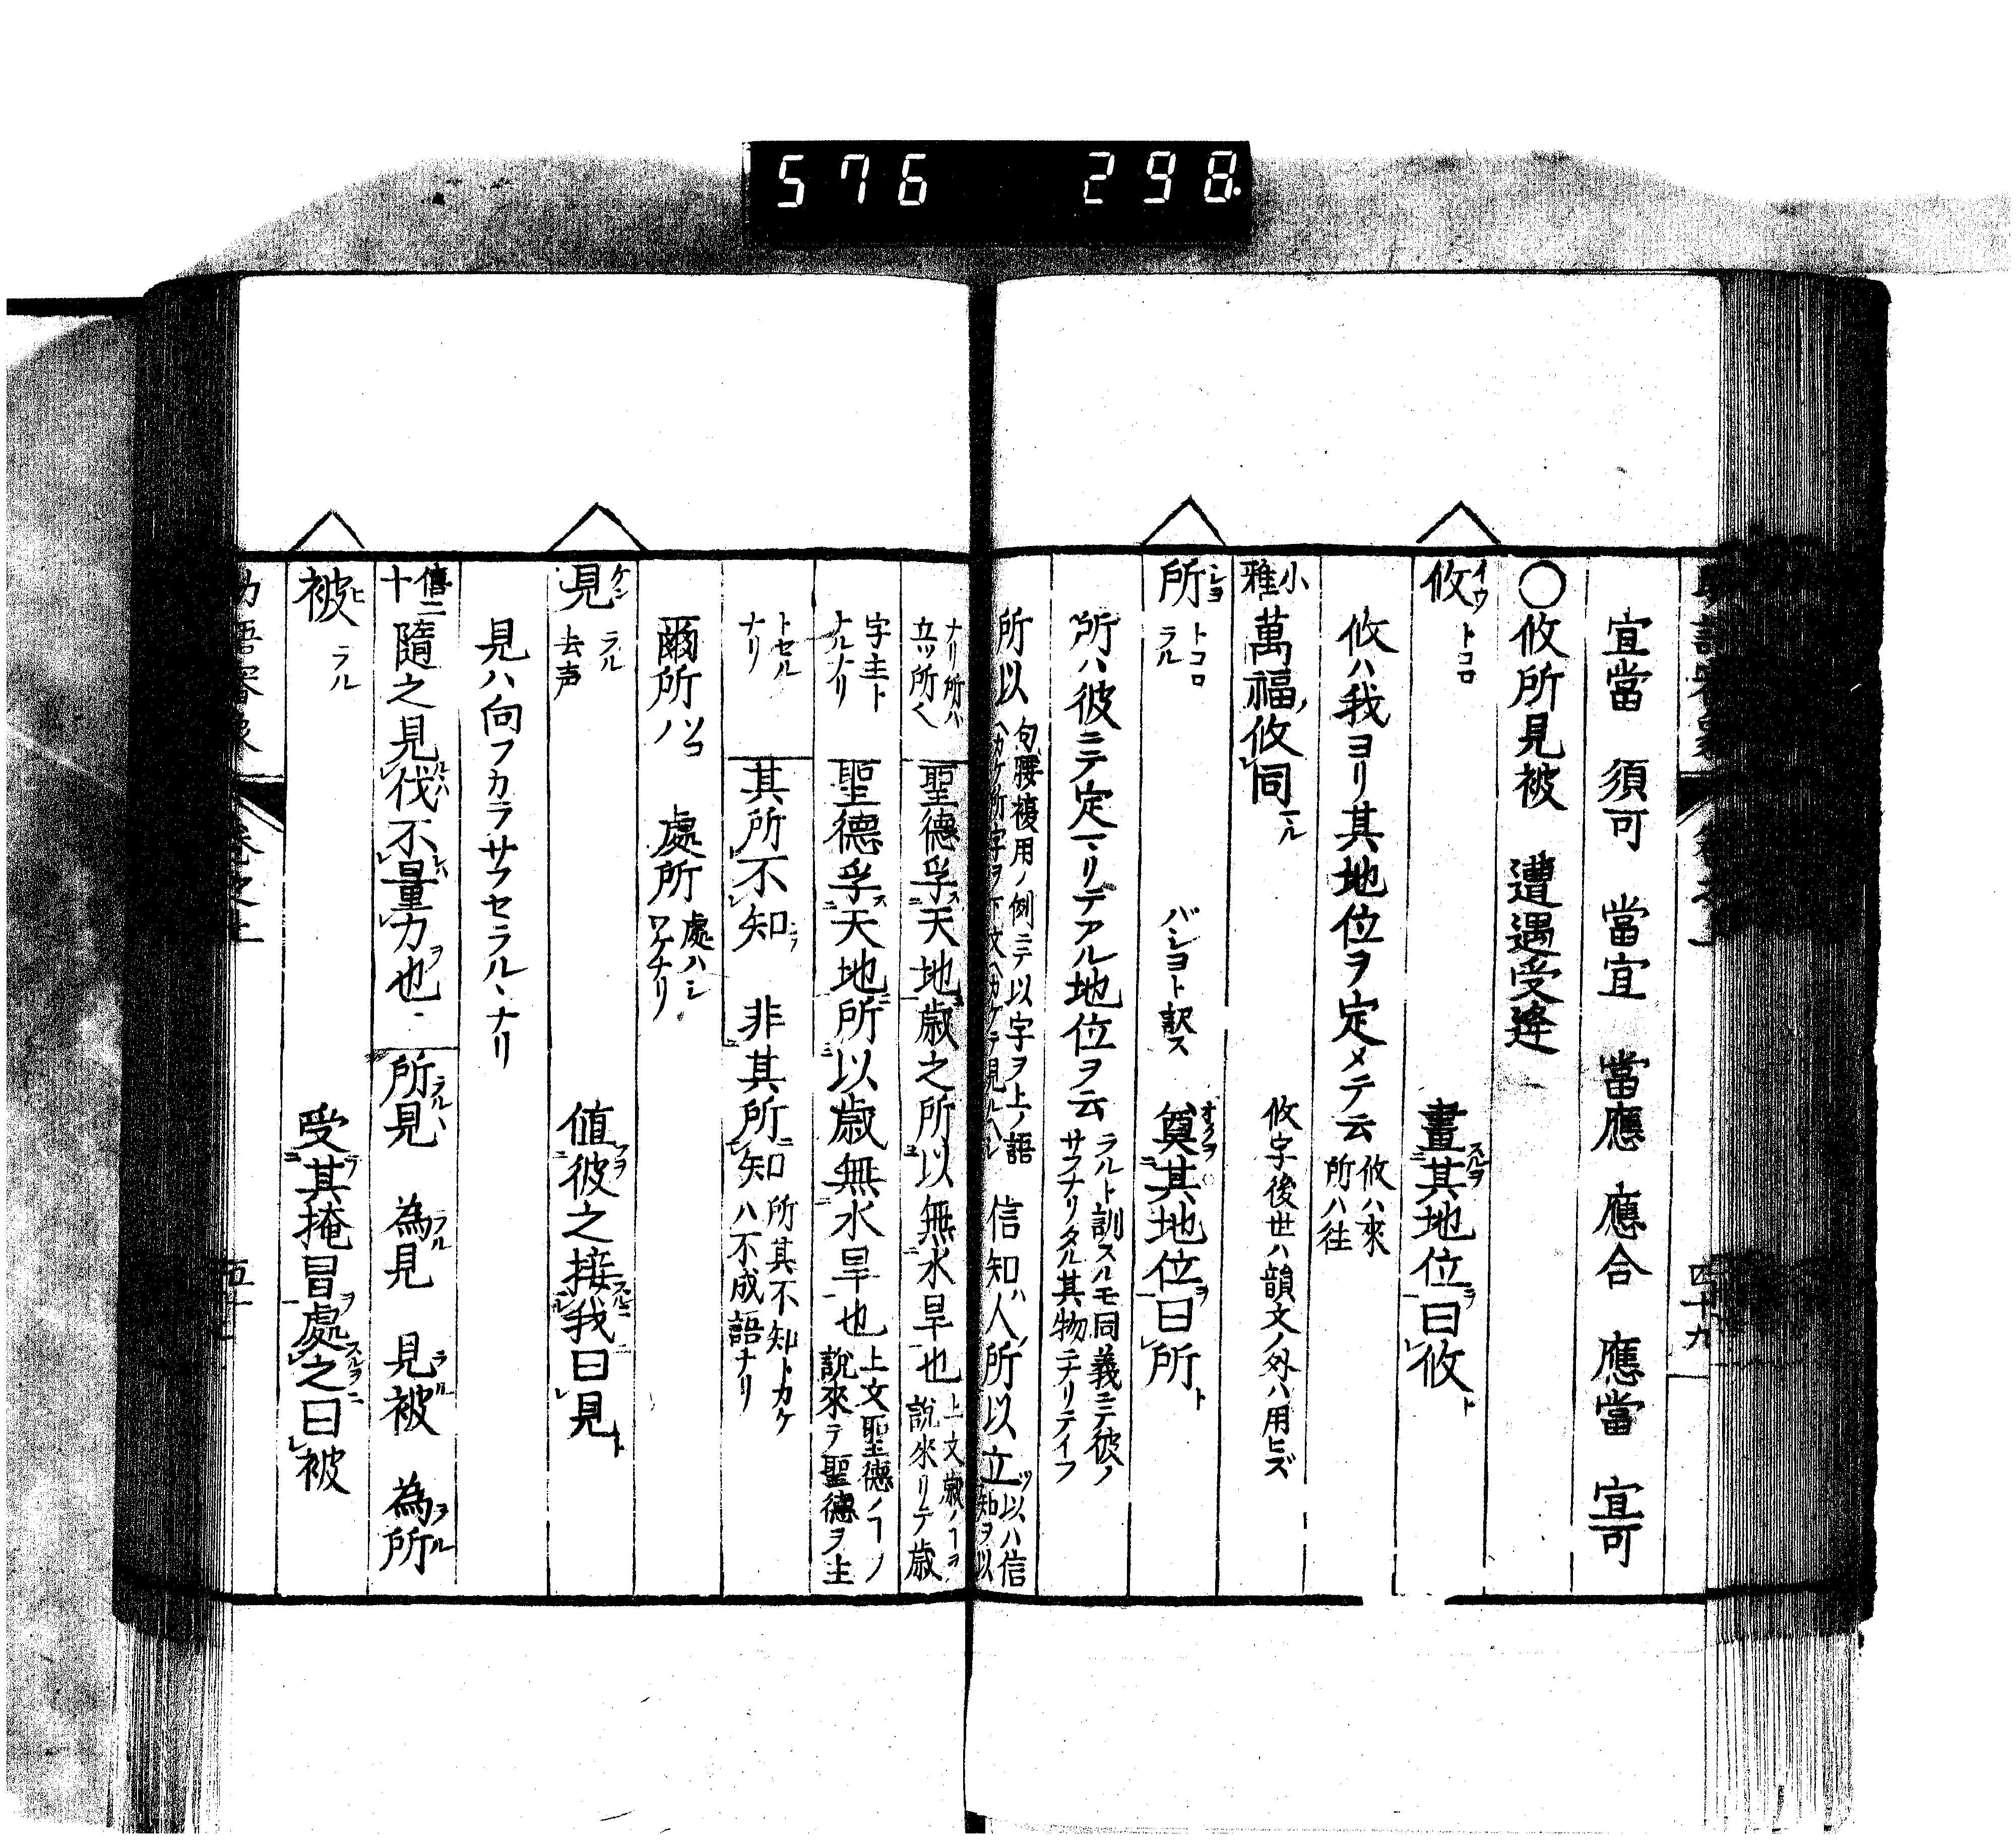 576 298
宜當 須可 當宜 當應 應合 應當 宜可
〇攸所見被 遭遇受逄
攸 イウ トコロ 畫其地位曰攸
攸ハ我ヨリ其地位ヲ定メテ云 攸ハ來 所ハ往
小雅 萬福攸同 攸字後世ハ韻文ノ外ハ用ヒズ
所 シヨ トコロ ラル バシヨト訳ス 奠其地位曰所
所ハ彼ニテ定マリテアル地位ヲ云 ラルト訓スルモ同義ニテ彼ノ サフナリタル其物ニナリテイフ
所以 句腰複用ノ例ニテ以字ヲ上ノ語 ヘカケ所字ヲ下文ヘカケテ見ルヘシ 信知人所以立 以ハ信 知ヲ以
ナリ所ハ 立ツ所ヘ 聖德孚天地歳之所以無水旱也 上文歳ノヿヲ 說來リテ歳
字主ト ナルナリ 聖德孚天地所以歳無水旱也 上文聖德ノヿノ 說來テ聖德ヲ主
トセル ナリ 其所不知 非其所知 所其不知トカケ ハ不成語ナリ
爾所 ソコノ 處所 處ハシ ワケナリ
見 ケン ラル 去声 値彼之接我曰見
見ハ向フカラサフセラルヽナリ
僖二十 隨之見伐不量力也 所見 為見 見被 為所
被 ヒ ラル 受其掩冒處之曰被